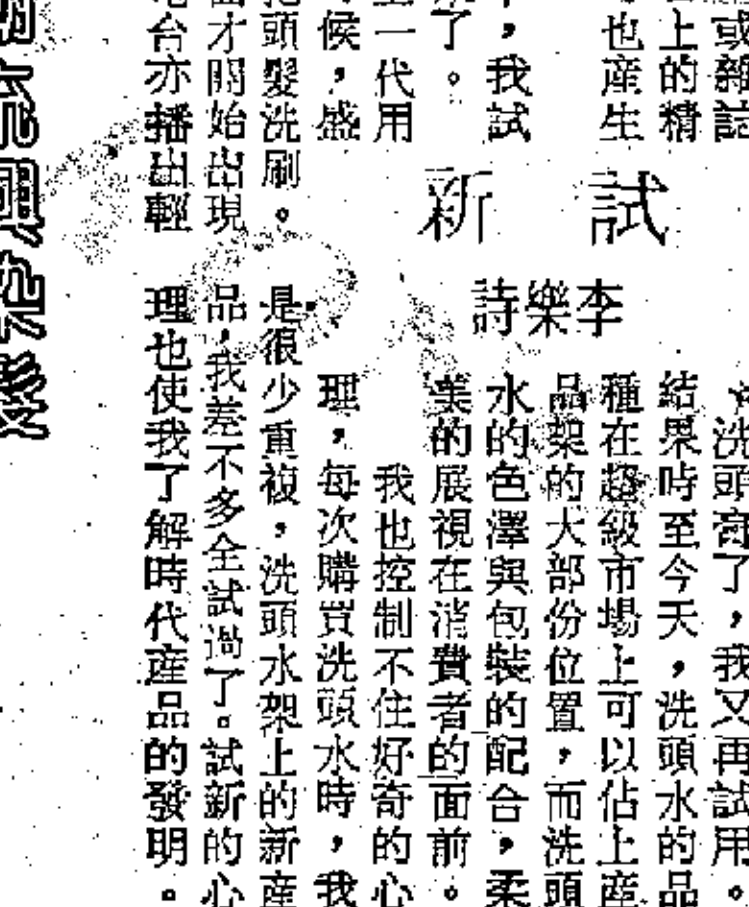 或雜誌
上的精
也産生
，我試
了。
一代用
候，盛
頭髮洗刷。
才開始出現
台亦播出輕
試新
李樂詩
洗頭膏了，我又再試用。
結果時至今天，洗頭水的品
種在超級市場上可以佔上産
品架的大部份位置，而洗頭
水的色澤與包裝的配合，柔
美的展視在消費者的面前。
我也控制不住好奇的心
理，每次購買洗頭水時，我
是很少重複，洗頭水架上的新産
品，我差不多全試過了。試新的心
理也使我了解時代産品的發明。